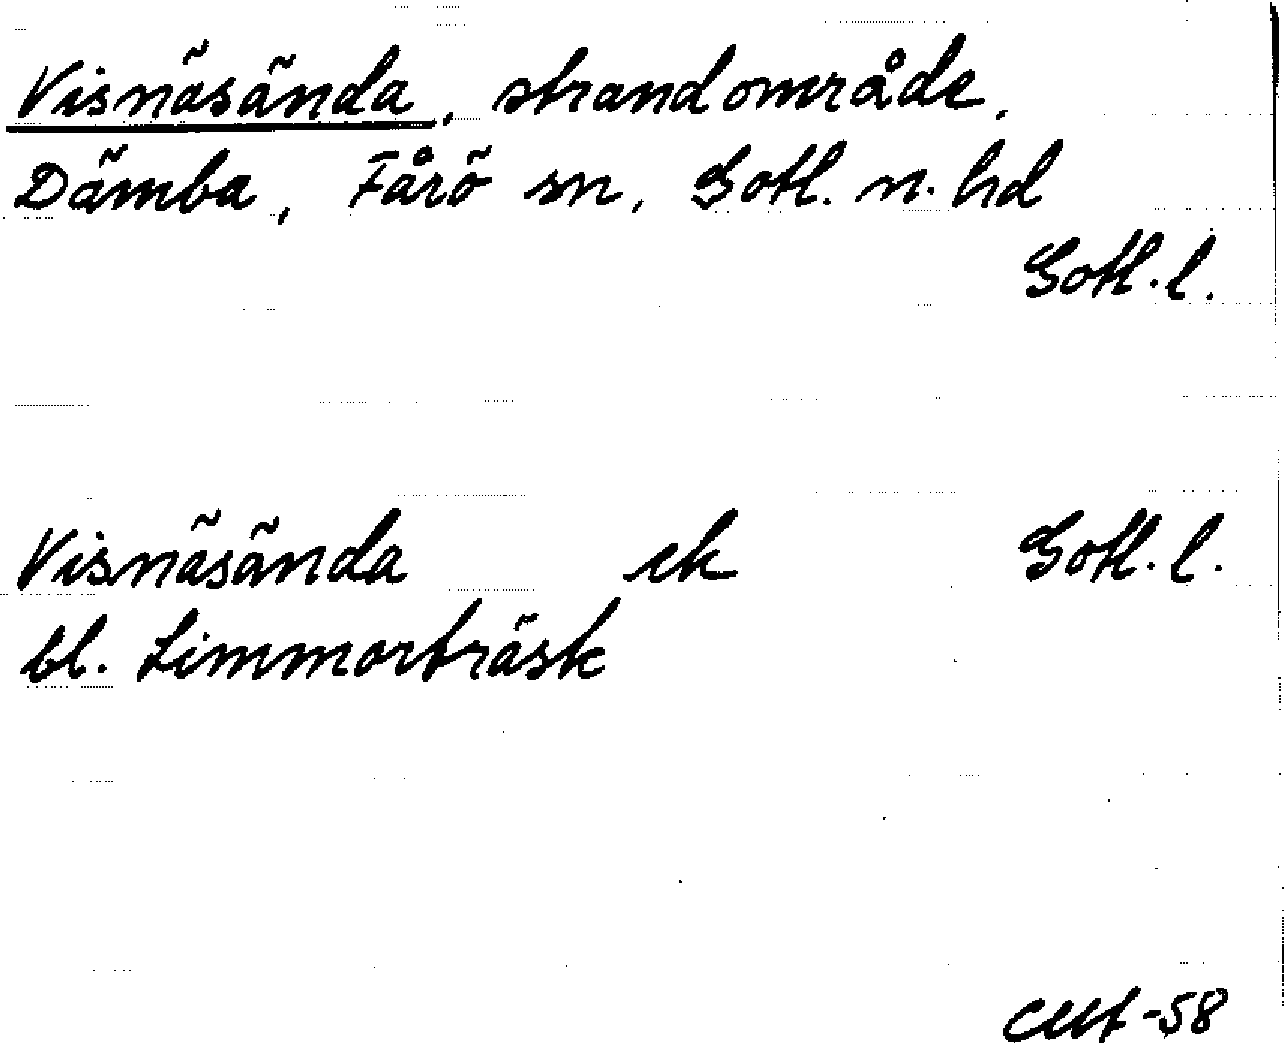 Visnäsända, strandområde,
Dämba, Fårö sn, Gotl. n. hd
Gotl. l.
Visnäsända ek Gotl. l.
bl. Limmorträsk
-58